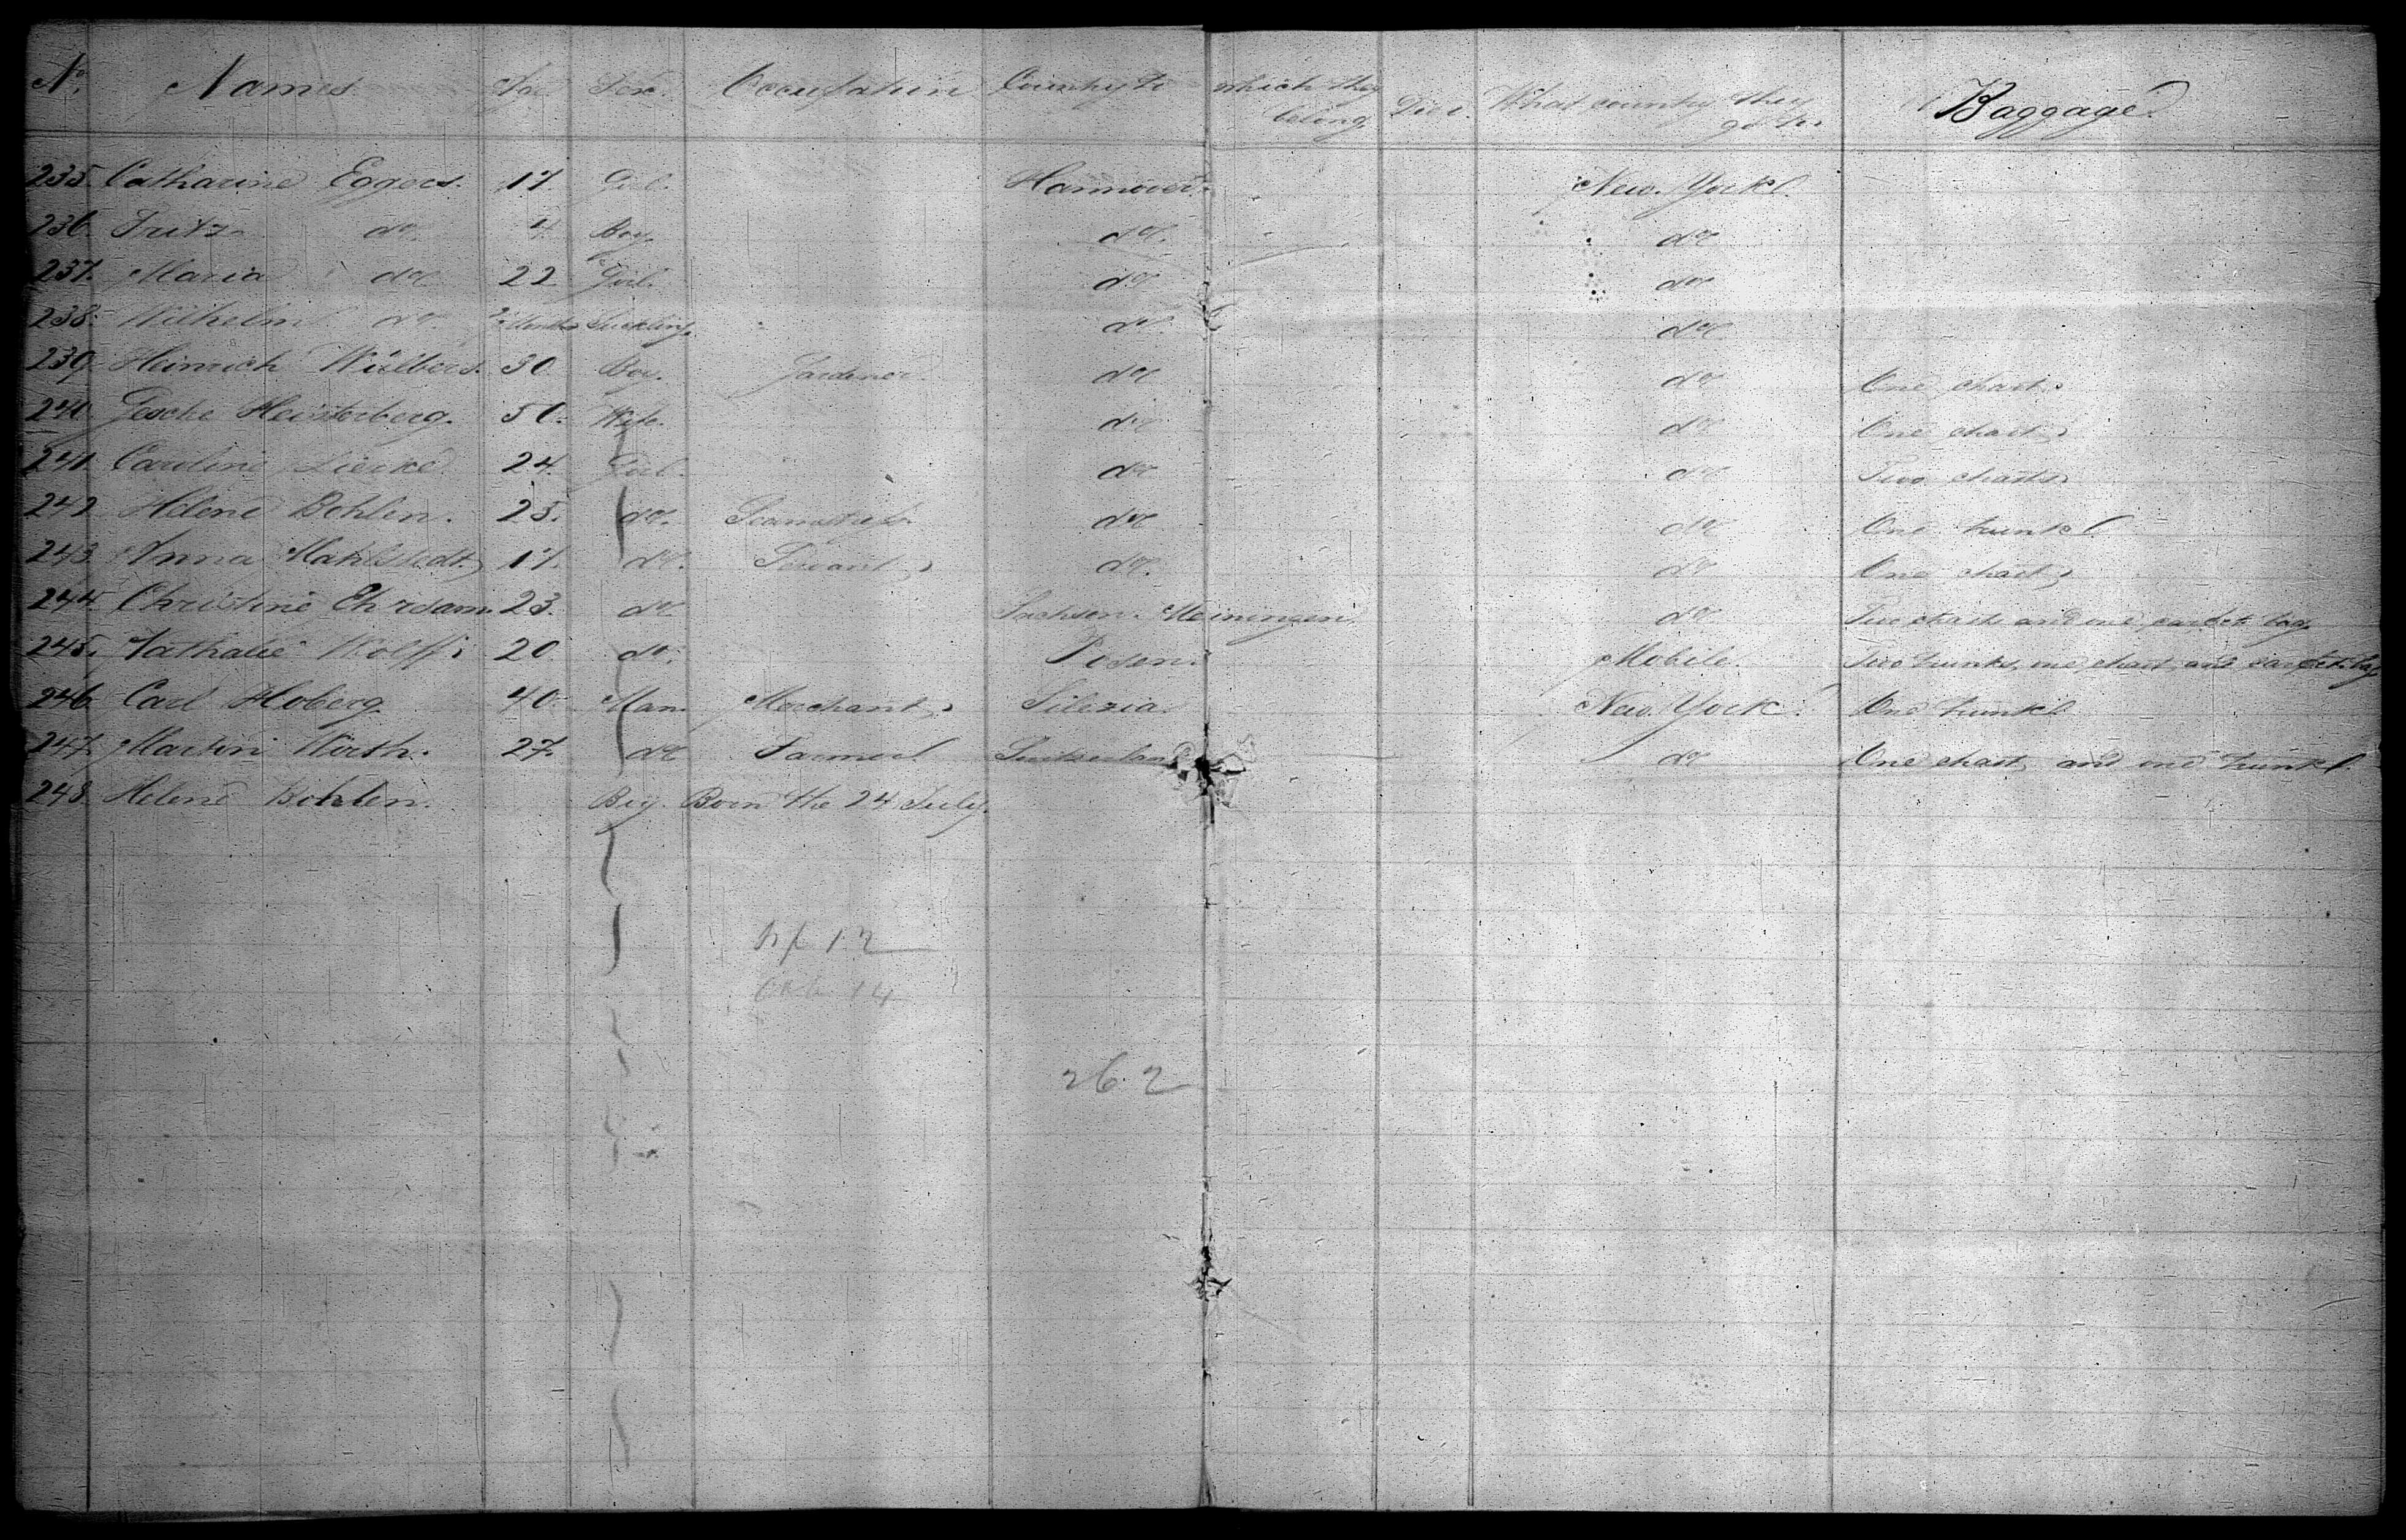 No. Names Age Sex. Occupation Country to which they belong. Died. What country they go to. Baggage.
235. Catharine Eggers. 17. Girl. Hannover. New. York.
236. Fritz do. 4. Boy. do. do
237. Maria do 22 Girl. do do
238. Wilhelm do. Months Suckling. do. do
239. Heinrich Wülbers. 30. Boy. Gardener. do do One chest.
240. Gesche Heisterberg. 50. Wife. do do One chest.
241. Caroline Lierke 24. Girl. do do Two chests
242. Helene Bohlen. 25. do. Seamstress do do One trunk.
243. Anna Mahlstedt. 17. do. Servant, do. do One chest,
244. Christine Ehrsam. 23. do Sachsen. Meiningen. do Two chests and one carpet bag.
245. Nathalie Wolff. 20. do. Posen. Mobile. Two trunks, one chest, and carpet bag
246. Carl Hoberg. 40. Man. Merchant, Silezia. New. York. One trunk.
247. Martin Wirth. 27. do Farmer Switzerland do One chest, and one trunk.
248. Helene Bohlen. Born the 24 July.
12
14
262